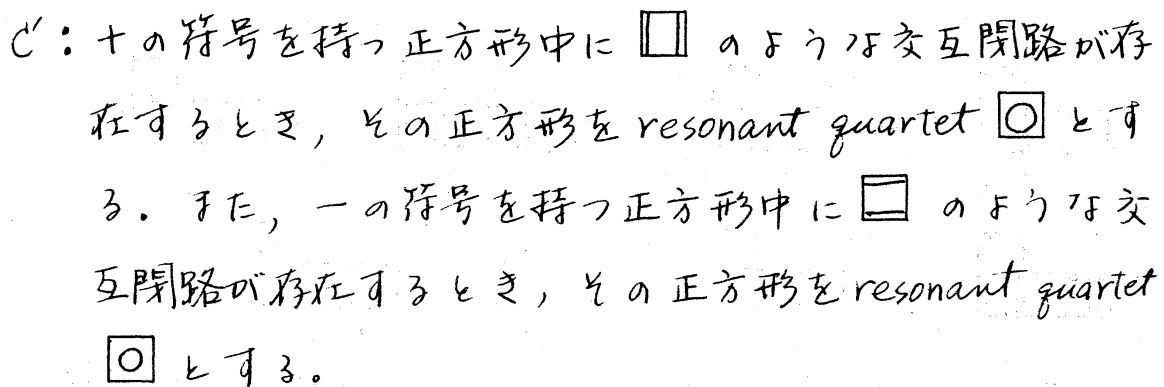 C′：＋の符号を持つ正方形中に のような交互閉路が存
在するとき，その正方形を resonant quartet とす
る．また，－の符号を持つ正方形中に のような交
互閉路が存在するとき，その正方形を resonant quartet
とする。